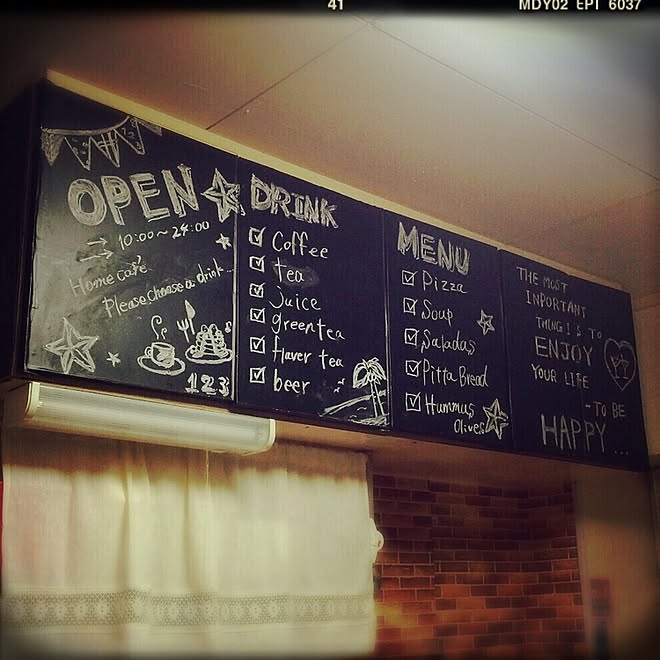 41
MDY02 EPT 6037
OPEN
10:00~24:00
Home cafe
Please choose a drink...
123
DRINK
Coffee
tea
Juice
green tea
flaver tea
beer
MENU
Pizza
Soup
Saladas
Pitta Bread
Hummus
Olives
THE MOST
INPORTANT
THING IS TO
ENJOY
YOUR LIFE
-TO BE
HAPPY...